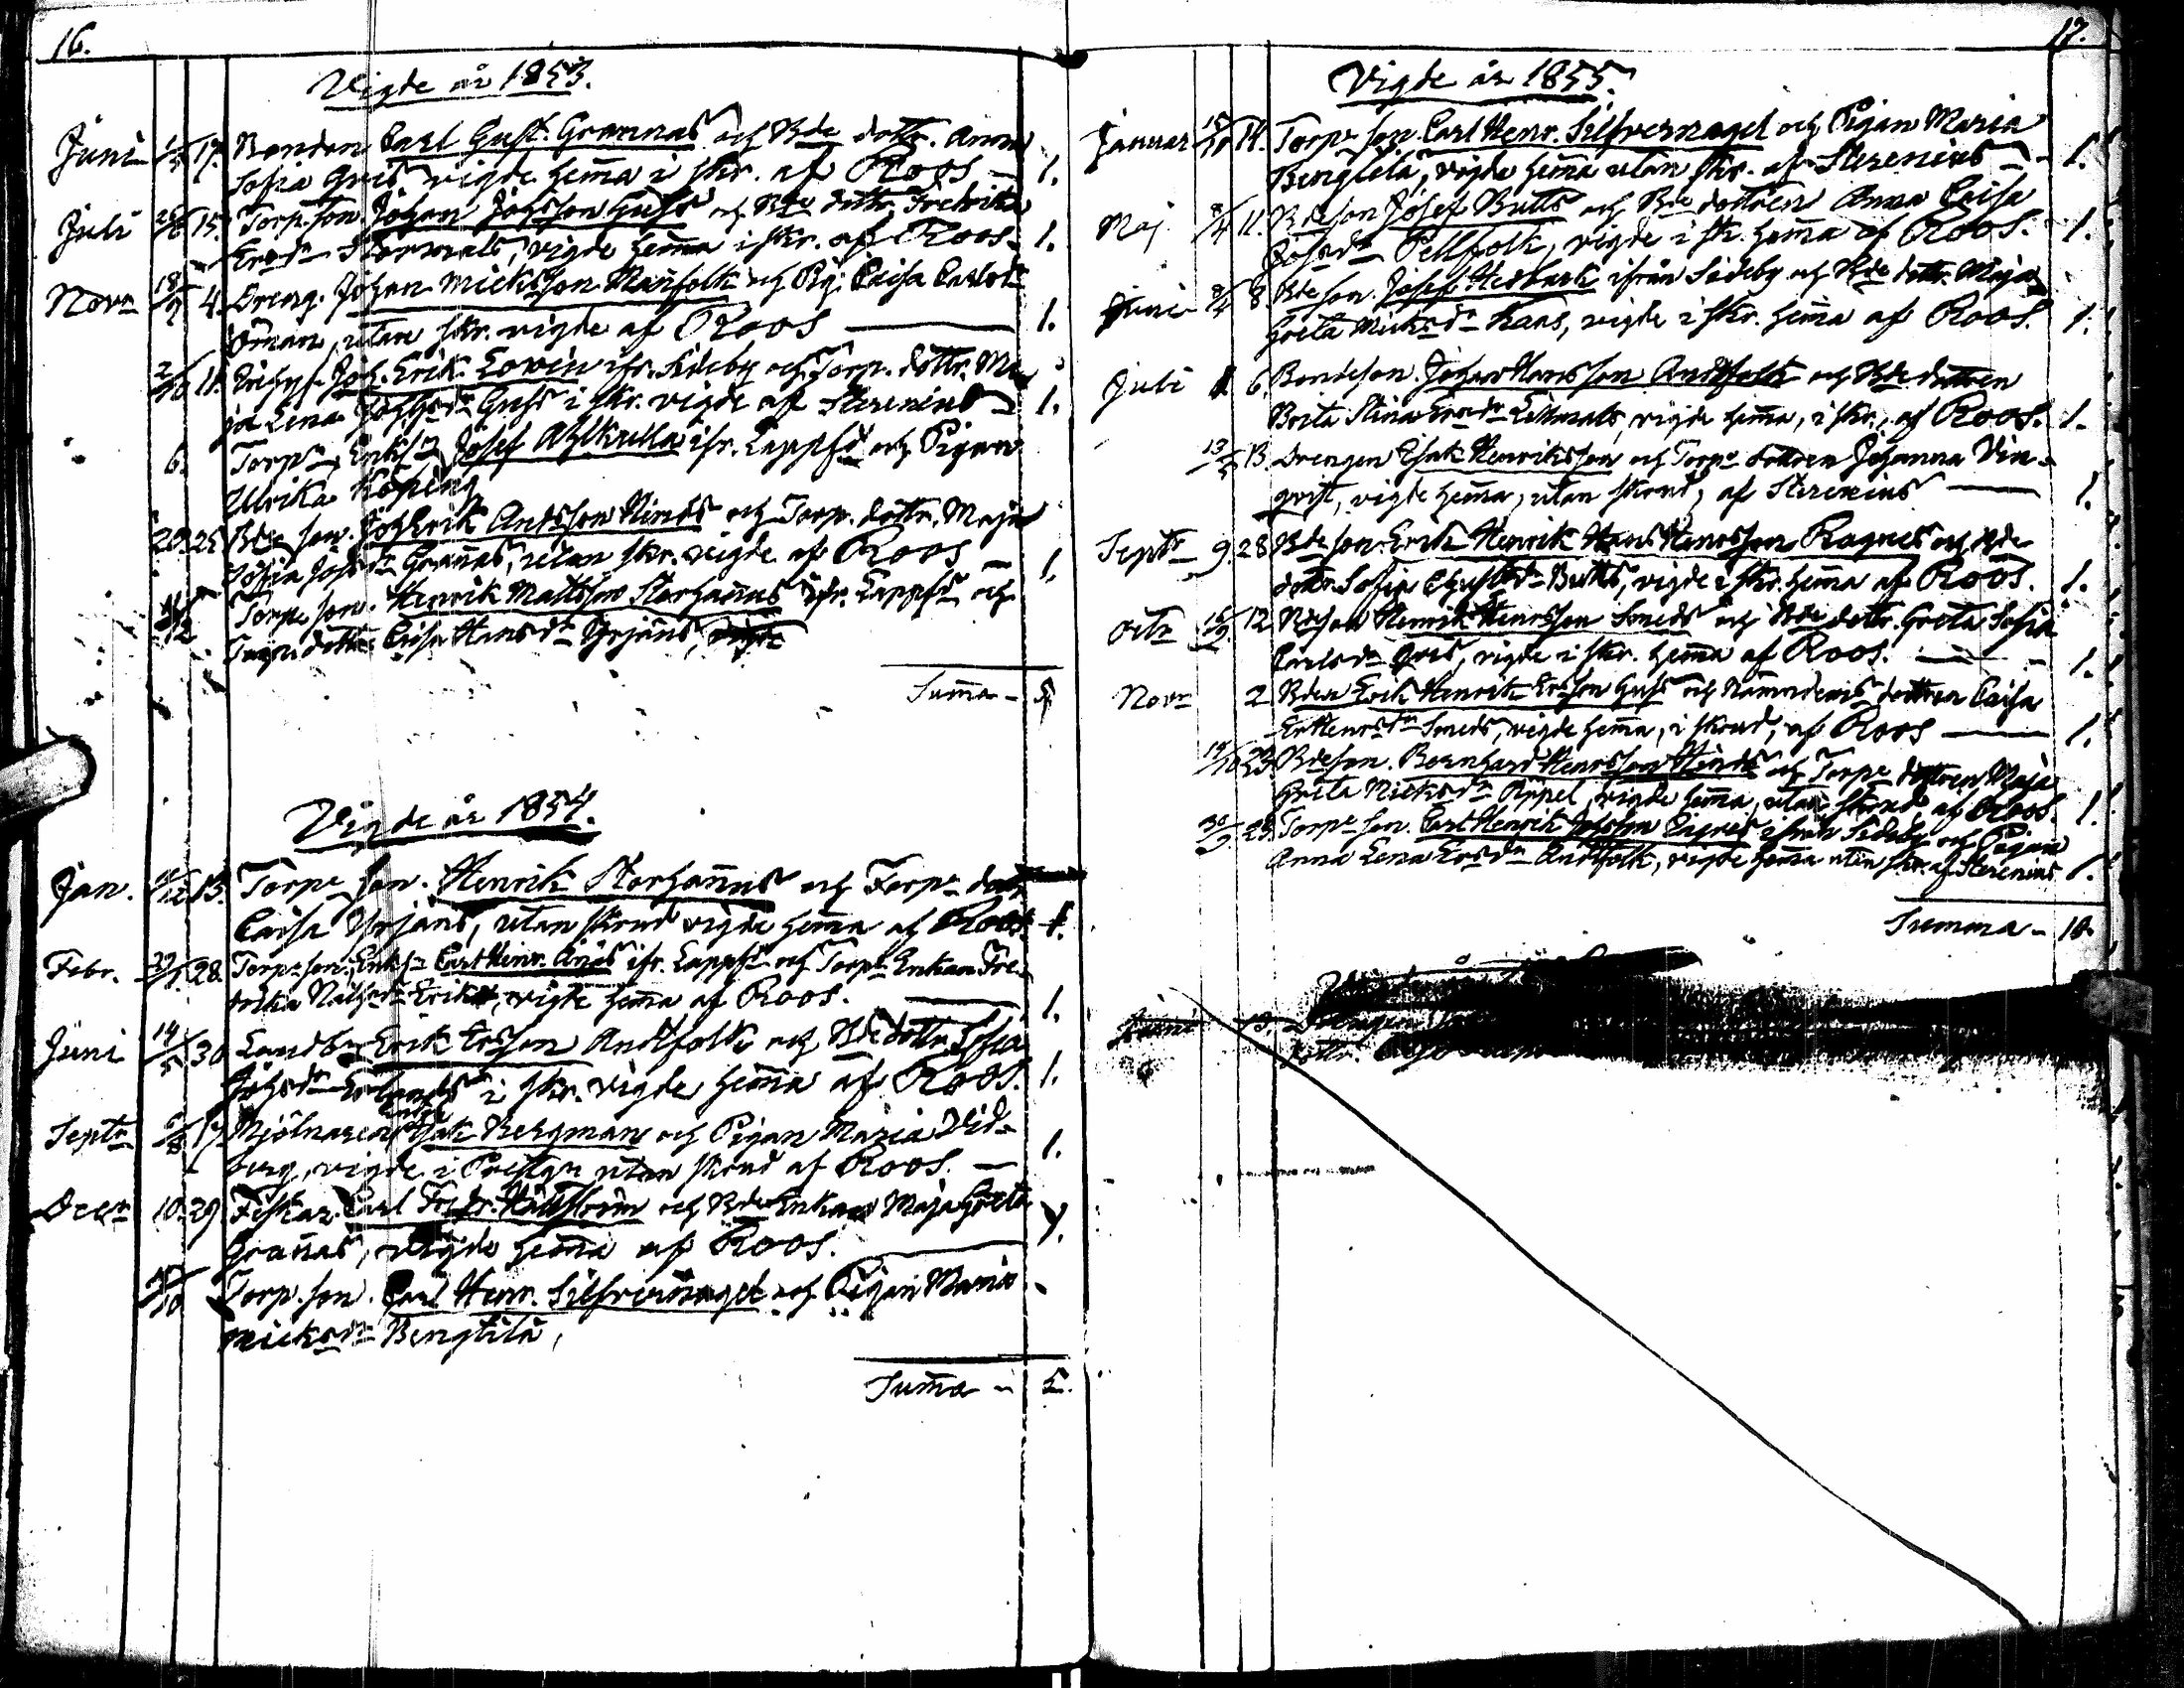 16.
Vigde år 1853.
Juni 17. Bonden Carl Gust. Grannas och Bde dottr. Anna
Sofia Gris vigde hemma i skr. af Roos 1.
Juli 15. Torp. son Johan Johsson Guss och Bde dottr. Fredrika
vigde hemma i skr. af Roos. 1.
Novr 18/9 4. Dreng. Johan Micksson Manfolk och Pig. Caisa
Öman, utan skr. vigde af Roos 1.
2/10 11. Joh. Erik Lovin ifr. Sideby och Torp. dottr. Ma
ja Lena Guss i skr. vigde af Sterenius 1.
6. Torpn Enkl. Josef Ahlkulla ifr. Lappfd och Pigan
Ulrika Köping
20. 25 Bde son. Joh Erik Andsson Hinds och Torp. dottr. Maja
Sofia Johsdr Grannas, utan skr. vigde af Roos 1.
Torpe son. Henrik Mattsson Storhannus ifr. Lappfd och
Torpn dottr Caisa Hansdr Yrjans, vigde
Summa - 5
Vigde år 1854.
Jan. 13. Torpe son. Henrik Storhannus och Torpe dottr
Caisa Yrjans, utan skrud vigde hemma af Roos. 1.
Febr. 28. Torpe son, Enkl. Carl Henr. ifr. Lappfd och Torpe Enkan Fre
drika vigde hemma af Roos. 1.
Juni 14/5 30 Landb. Erik Ersson Andtfolk och Bde dottr. Sofia
Johsdr i skr. vigde hemma af Roos. 1.
Septr 17. Mjölnaren Isak Bergman och Pigan Maria Vid-
berg, vigde i Prestgn utan skrud af Roos. 1.
Decr 10. 29 Fiskar. Carl Fredr. Hällström och Bde Enkan Maja Greta
Grannas, vigde hemma af Roos. 1.
Torp. son. Carl Henr. Silfvernagel och Pigan Maria
Micksdr Bengtilä,
Summa - 5.
17.
Vigde år 1855.
Januar 14. Torpe son. Carl Henr. Silfvernagel och Pigan Maria
Bengtelä, vigde hemma utan skr. af Sterenius 1.
Maj 11. Bde son Josef Butts och Bde dottren Anna Caisa
Johsdr Pellfolk, vigde i sk. hemma af Roos. 1.
Juni 8 Bde son. Josef Hedback ifrån Sideby och Bde dottr. Maja
Greta Micksdr Hans, vigde i skr. hemma af Roos. 1.
Juli 6. Bondeson. Johan Hansson Andtfolk och Bde dottren
Brita Stina Ersdr Lillmats, vigde hemma, i skr., af Roos. 1.
13. Drengen Isak Henriksson och Torpe dottren Johanna Vin-
qvist, vigde hemma, utan skrud, af Sterenius 1.
Septr 9. 28. Bde son Erik Henrik Hans Henrsson Ragnels och Bde
dottr. Sofia Butts, vigde i skr. hemma af Roos. 1.
Octr 16/9. 12. Bdeson Henrik Henrsson Smeds och Bde dottr. Greta Sofia
Carlsdr Gris, vigde i skr. hemma af Roos. 1.
Novr 2 Bden Erik Henrik Ersson Guss och Nämndems dottren Caisa
ErHenrsdr Smeds, vigde hemma, i skrud, af Roos 1.
14/10 23. Bdeson. Bernhard Henrsson Hinds och Torpe dottren Maja
Greta Micksdr Appel, vigde hemma, utan skrud af Roos. 1.
30/9. 23. Torpe son. Carl Henrik ifrån Sideby och Pigan
Anna Lena Ersdr Andtfolk, vigde hemma utan skr. af Sterenius 1.
Summa - 10.
Juni 13. Drengen
dottr.